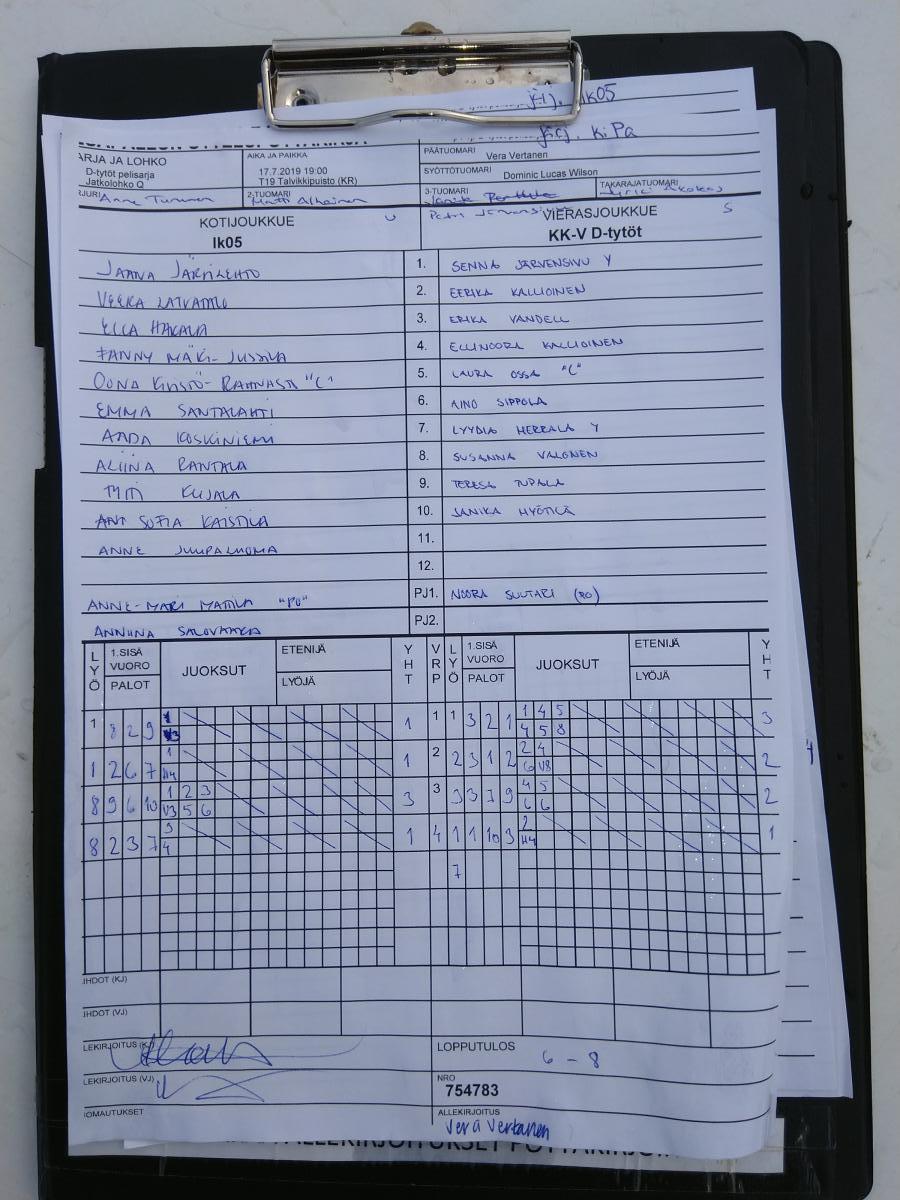 j-1). Ik05
järj. KiPa
ARJA JA LOHKO
D-tytöt pelisarja
Jatkolohko Q
AIKA JA PAIKKA
17.7.2019 19:00
T19 Talvikkipuisto (KR)
PÄÄTUOMARI
Vera Vertanen
SYÖTTÖTUOMARI
Dominic Lucas Wilson
Anne Turunen
2-TUOMARI
Matti Alhainen
3-TUOMARI
TAKARAJATUOMARI
KOTIJOUKKUE U
Ik05
VIERASJOUKKUE S
KK-V D-tytöt
JAANA JÄRVILEHTO 1. SENNA JÄRVENSIVU Y
VEERA LATVATALO 2. EERIKA KALLIOINEN
ELLA HAKALA 3. ERIKA VANDELL
FANNY MÄKI-JUSSILA 4. ELLINOORA KALLIOINEN
OONA KIVISTÖ-RAHNASTI "C" 5. LAURA OSSA "C"
EMMA SANTALAHTI 6. AINO SIPPOLA
AADA KOSKINIEMI 7. LYYDIA HERRALA Y
ALIINA RANTALA 8. SUSANNA VALONEN
KUJALA 9. TERESA TUPALA
SOFIA KAISTILA 10. JANIKA MYÖTILÄ
ANNE JUUPALUOMA 11.
12.
ANNE-MARI MATTILA "PO" PJ1. NOORA SUUTARI (PO)
ANNIINA SALOVAARA PJ2.
LYÖ 1.SISÄ VUORO PALOT JUOKSUT ETENIJÄ LYÖJÄ YHT VRP LYÖ 1.SISÄ VUORO PALOT JUOKSUT ETENIJÄ LYÖJÄ YHT
1 8 2 9 1 1 1 3 2 1 1 4 5 3
V3 4 5 8
1 2 6 7 1 1 2 2 3 1 2 2 4 2
H4 6 V8
8 9 6 10 1 2 3 3 3 3 3 7 9 4 5 2
V3 5 6 6 6
8 2 3 7 3 1 4 1 1 10 3 2 1
4 H4
7
IHDOT (KJ)
IHDOT (VJ)
LEKIRJOITUS (KJ)
LOPPUTULOS 6 - 8
LEKIRJOITUS (VJ)
NRO
754783
OMAUTUKSET
ALLEKIRJOITUS
Vera Vertanen